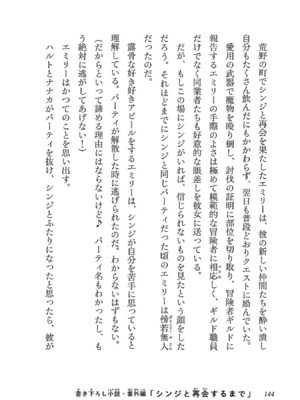 荒野の町でシンジと再会を果たしたエミリーは、彼の新しい仲間たちを酔い潰し
自分もたくさん飲んだにもかかわらず、翌日も普段どおりクエストに励んでいた。
愛用の武器で魔物を殴り倒し、討伐の証明に部位を切り取り、冒険者ギルドに
報告するエミリーの手際のよさは極めて模範的な冒険者に相応しく、ギルド職員
だけでなく同業者たちも好意的な眼差しを彼女に送っている。
だが、もしこの場にシンジがいれば、信じられないものを見たという顔をした
だろう。それほどまでにシンジと同じパーティだった頃のエミリーは傍若無人
だったのだ。
露骨な好き好きアピールをするエミリーは、シンジが自分を苦手に思っていると
理解している。パーティが解散した時に逃げられたのだ。わからないはずもない。
(だからといって諦める理由にはならないけど♪ パーティ名もわかったし、も
う絶対に逃がしてあげない！)
エミリーはかつてのことを思い出す。
ハルトとナナカがパーティを抜け、シンジとふたりになったと思ったら、彼が
書き下ろし小説・番外編「シンジと再会するまで」 144